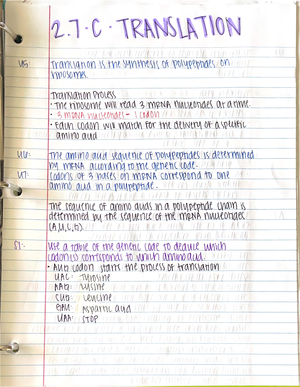 2.7.C. TRANSLATION
U5: Translation is the synthesis of polypeptides on
ribosomes.
Translation Process
• The ribosome will read 3 mRNA nucleotides at a time.
• 3 mRNA nucleotides = 1 codon
• Each codon will match for the delivery of a specific
amino acid
U6: The amino acid sequence of polypeptides is determined
by mRNA according to the genetic code.
U7: Codons of 3 bases on mRNA correspond to one
amino acid in a polypeptide.
The sequence of amino acids in a polypeptide chain is
determined by the sequence of the mRNA nucleotides
(A, U, C, G).
S1: Use a table of the genetic code to deduce which
codon(s) corresponds to which amino acid.
• AUG codon starts the process of translation
UAC: Tyrosine
Lysine
Leucine
Aspartic acid
UAA: STOP